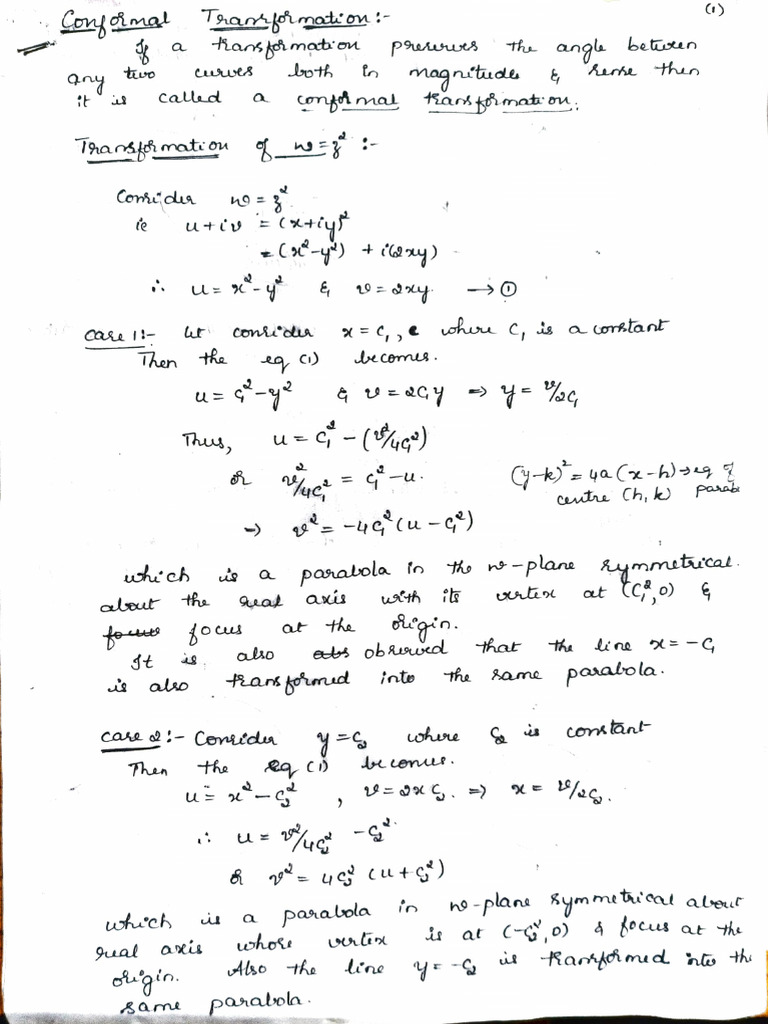 (1)
Conformal Transformation :-
If a transformation preserves the angle between
any two curves both in magnitude & sense then
it is called a conformal transformation.
Transformation of w = z² :-
Consider w = z²
ie u + iv = (x+iy)²
= (x²-y²) + i(2xy)
∴ u = x²-y² & v = 2xy. → ①
Case 1:- let consider x = C₁, where C₁ is a constant
Then the eq (1) becomes.
u = C₁²-y² & v = 2C₁y ⇒ y = v/2C₁
Thus, u = C₁² - (v²/4C₁²)
or v²/4C₁² = C₁²-u.
(y-k)² = 4a(x-h) → eq of
centre (h,k) parab
⇒ v² = -4C₁²(u - C₁²)
which is a parabola in the w-plane symmetrical
about the real axis with its vertex at (C₁²,0) &
focus focus at the origin.
It is also obs observed that the line x = -C₁
is also transformed into the same parabola.
Case 2:- Consider y = C₂ where C₂ is constant
Then the eq (1) becomes.
u = x² - C₂² , v = 2xC₂. ⇒ x = v/2C₂.
∴ u = v²/4C₂² - C₂².
or v² = 4C₂² (u + C₂²)
which is a parabola in w-plane symmetrical about
real axis whose vertex is at (-C₂²,0) & focus at the
origin. Also the line y = -C₂ is transformed into the
same parabola.